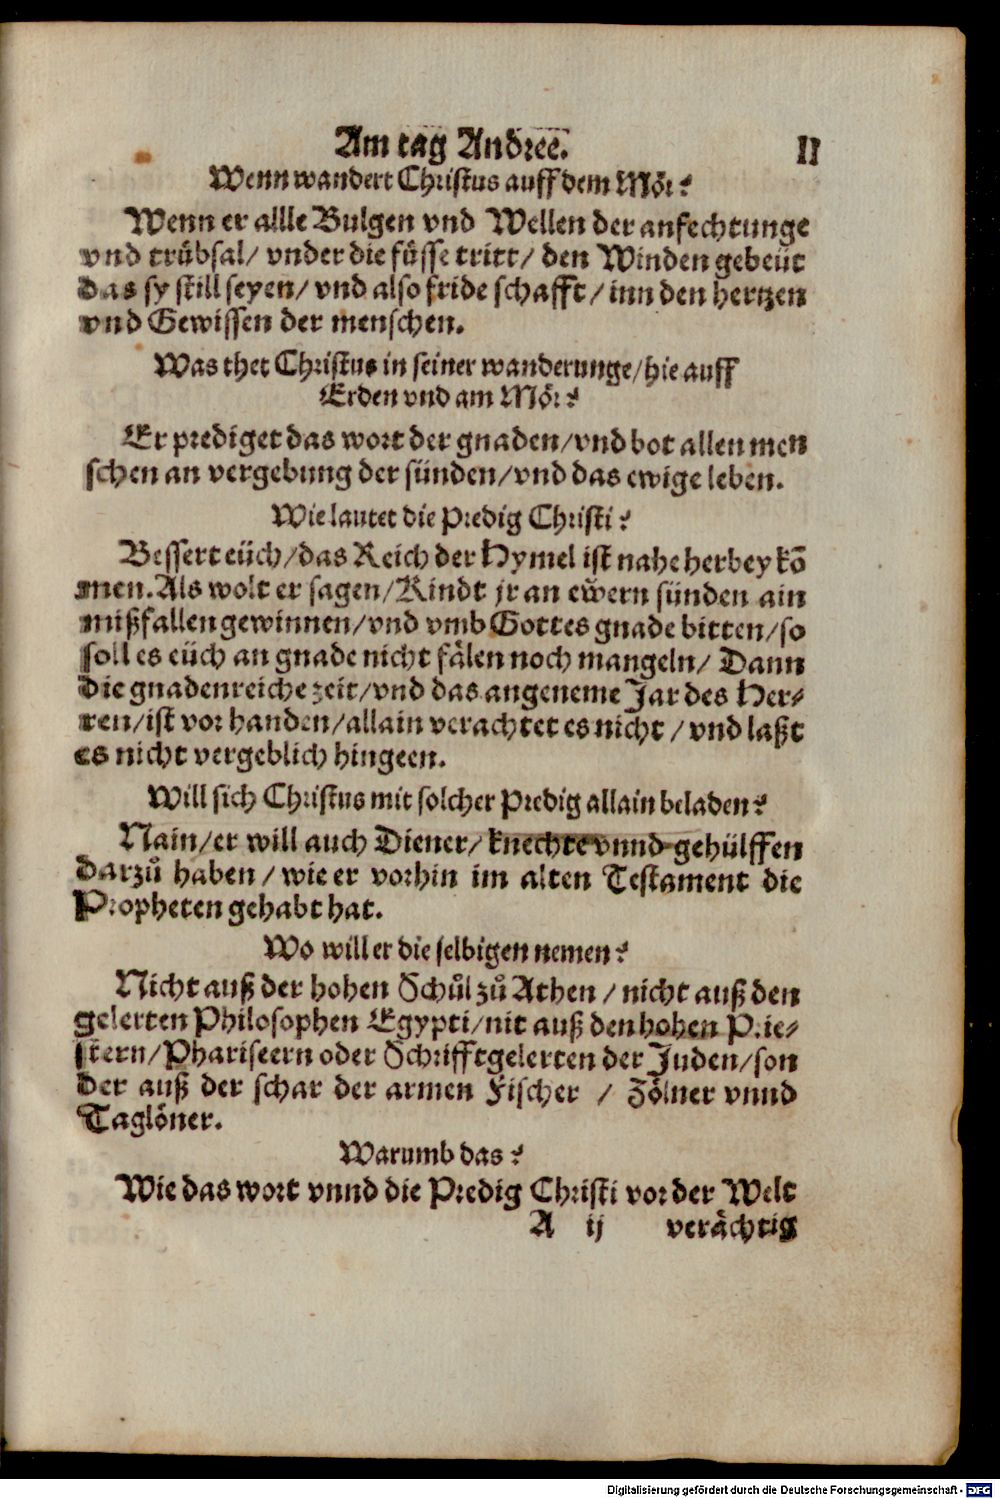 Am tag Andree. II
Wenn wandert Christus auff dem Mör?
Wenn er allle Bulgen vnd Wellen der anfechtunge
vnd trůbsal/ vnder die fůsse tritt/ den Winden gebeüt
das sy still seyen/ vnd also fride schafft/ inn den hertzen
vnd Gewissen der menschen.
Was thet Christus in seiner wanderunge/ hie auff
Erden vnd am Mör?
Er prediget das wort der gnaden/ vnd bot allen men
schen an vergebung der sünden/ vnd das ewige leben.
Wie lautet die Predig Christi?
Bessert eüch/ das Reich der Hymel ist nahe herbey kõ
men. Als wolt er sagen/ Kindt jr an ewern sünden ain
mißfallen gewinnen/ vnd vmb Gottes gnade bitten/ so
soll es eüch an gnade nicht fälen noch mangeln/ Dann
die gnadenreiche zeit/ vnd das angeneme Jar des Her-
ren/ ist vor handen/ allain verachtet es nicht/ vnd laßt
es nicht vergeblich hingeen.
Will sich Christus mit solcher Predig allain beladen?
Nain/ er will auch Diener/ knechte vnnd gehülffen
darzů haben/ wie er vorhin im alten Testament die
Propheten gehabt hat.
Wo will er die selbigen nemen?
Nicht auß der hohen Schůl zů Athen/ nicht auß den
gelerten Philosophen Egypti/ nit auß den hohen Prie-
stern/ Phariseern oder Schrifftgelerten der Juden/ son
der auß der schar der armen Fischer / Zölner vnnd
Taglöner.
Warumb das?
Wie das wort vnnd die Predig Christi vor der Welt
A ij verächtig
Digitalisierung gefördert durch die Deutsche Forschungsgemeinschaft - DFG